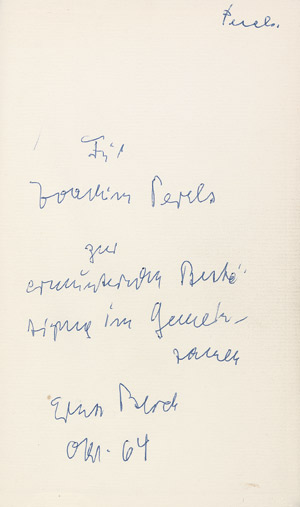 Perels.
Für
Joachim Perels
zur
ermunternden Bestä-
tigung im Gemein-
samen
Ernst Bloch
Okt. 64